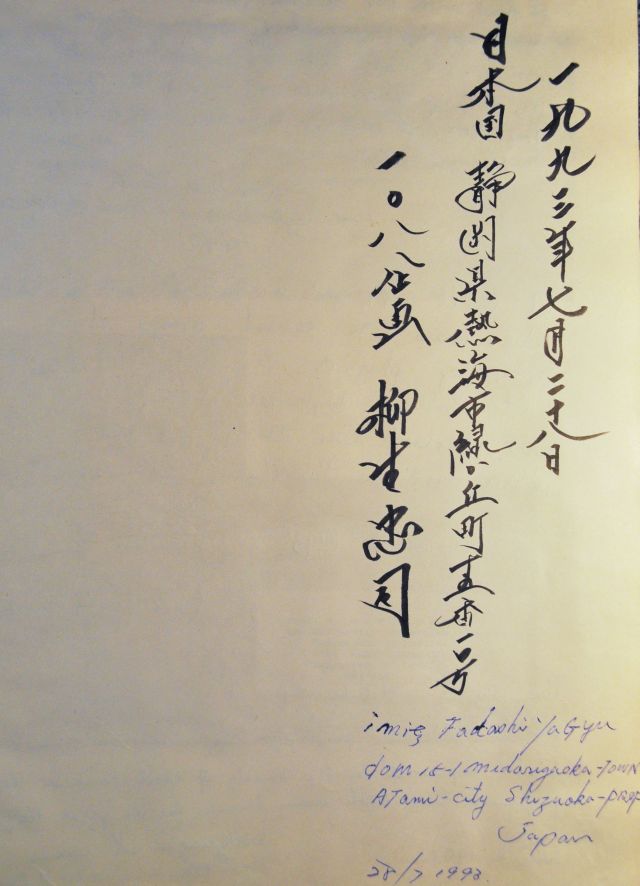 一九九三年七月二十八日
日本国 静岡県熱海市緑ヶ丘町十五番一号
一〇八企画 柳生忠司
imię Tadashi YaGyu
dom 15-1 midorigaoka-town
ATami-city Shizuoka-pref
Japan
28/7 1993.